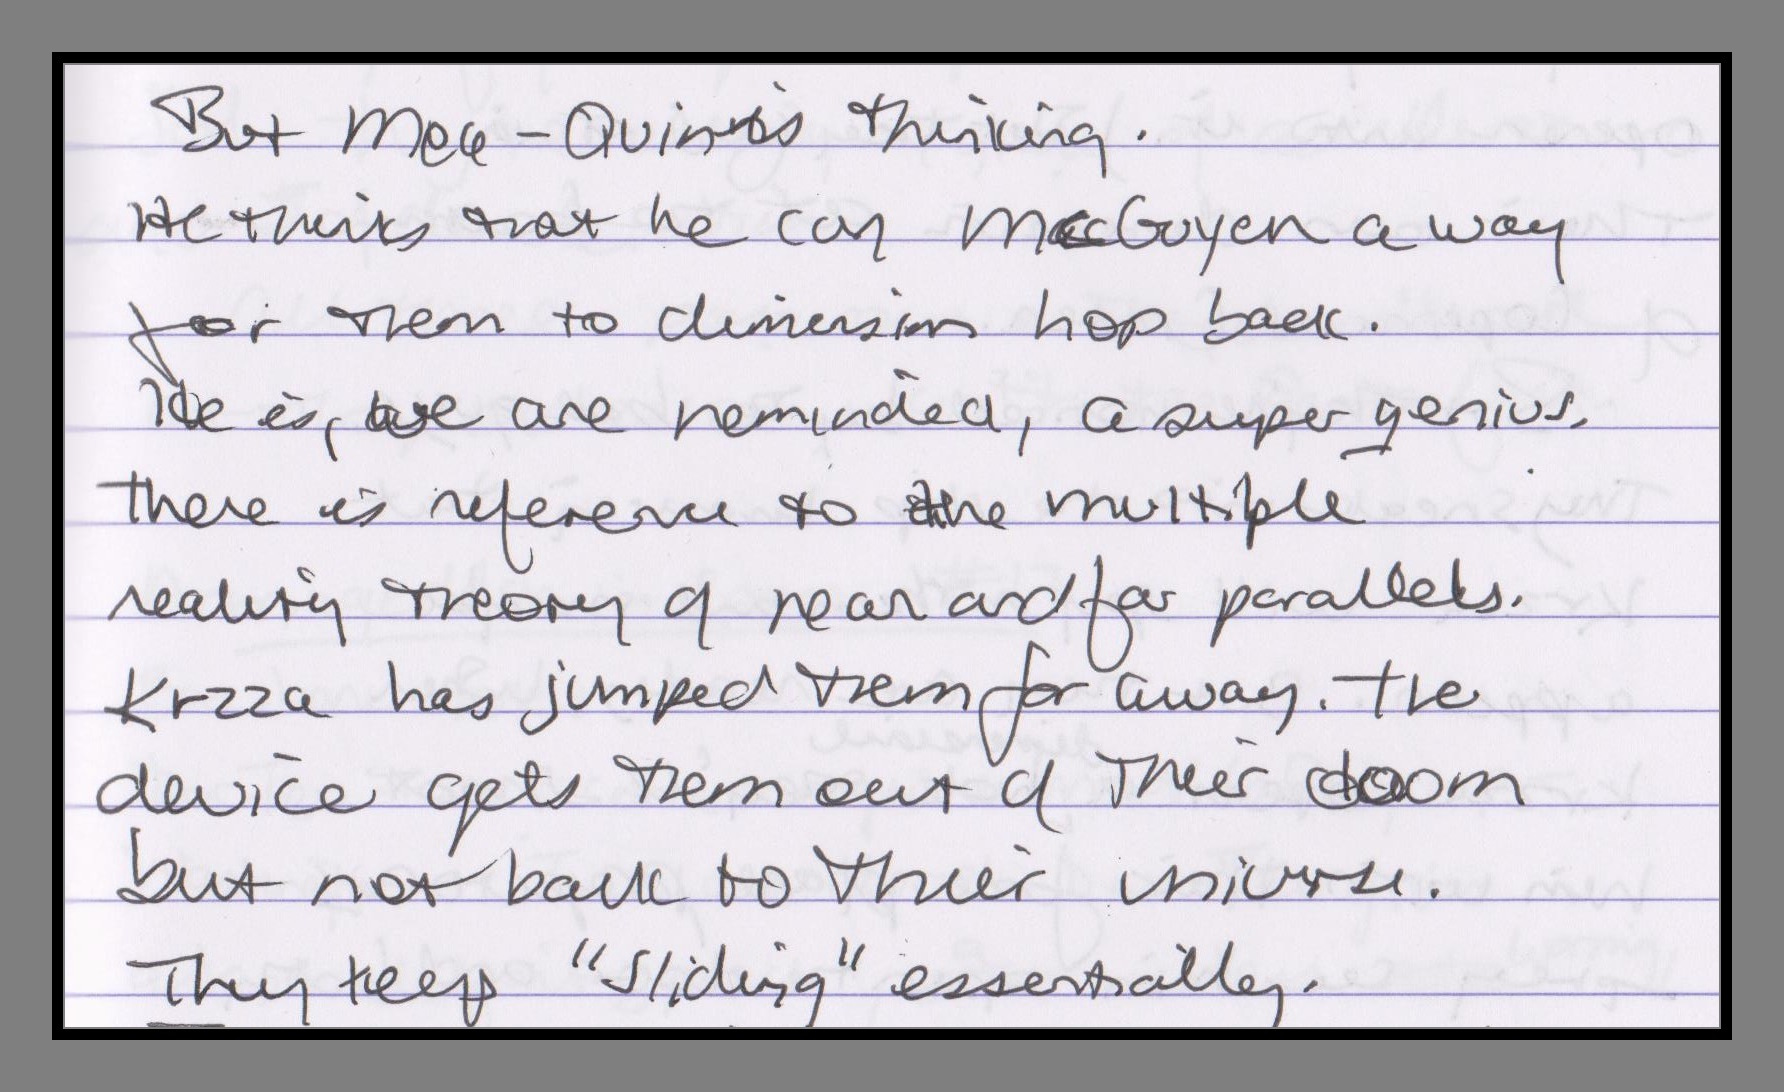 But Mee-Quin is thinking.
He thinks that he can MacGuyer a way
for them to dimension hop back.
He is, we are reminded, a super genius.
There is reference to the multiple
reality theory of near and far parallels.
Krzza has jumped them far away. The
device gets them out of their doom
but not back to their universe.
They keep "Sliding" essentially.